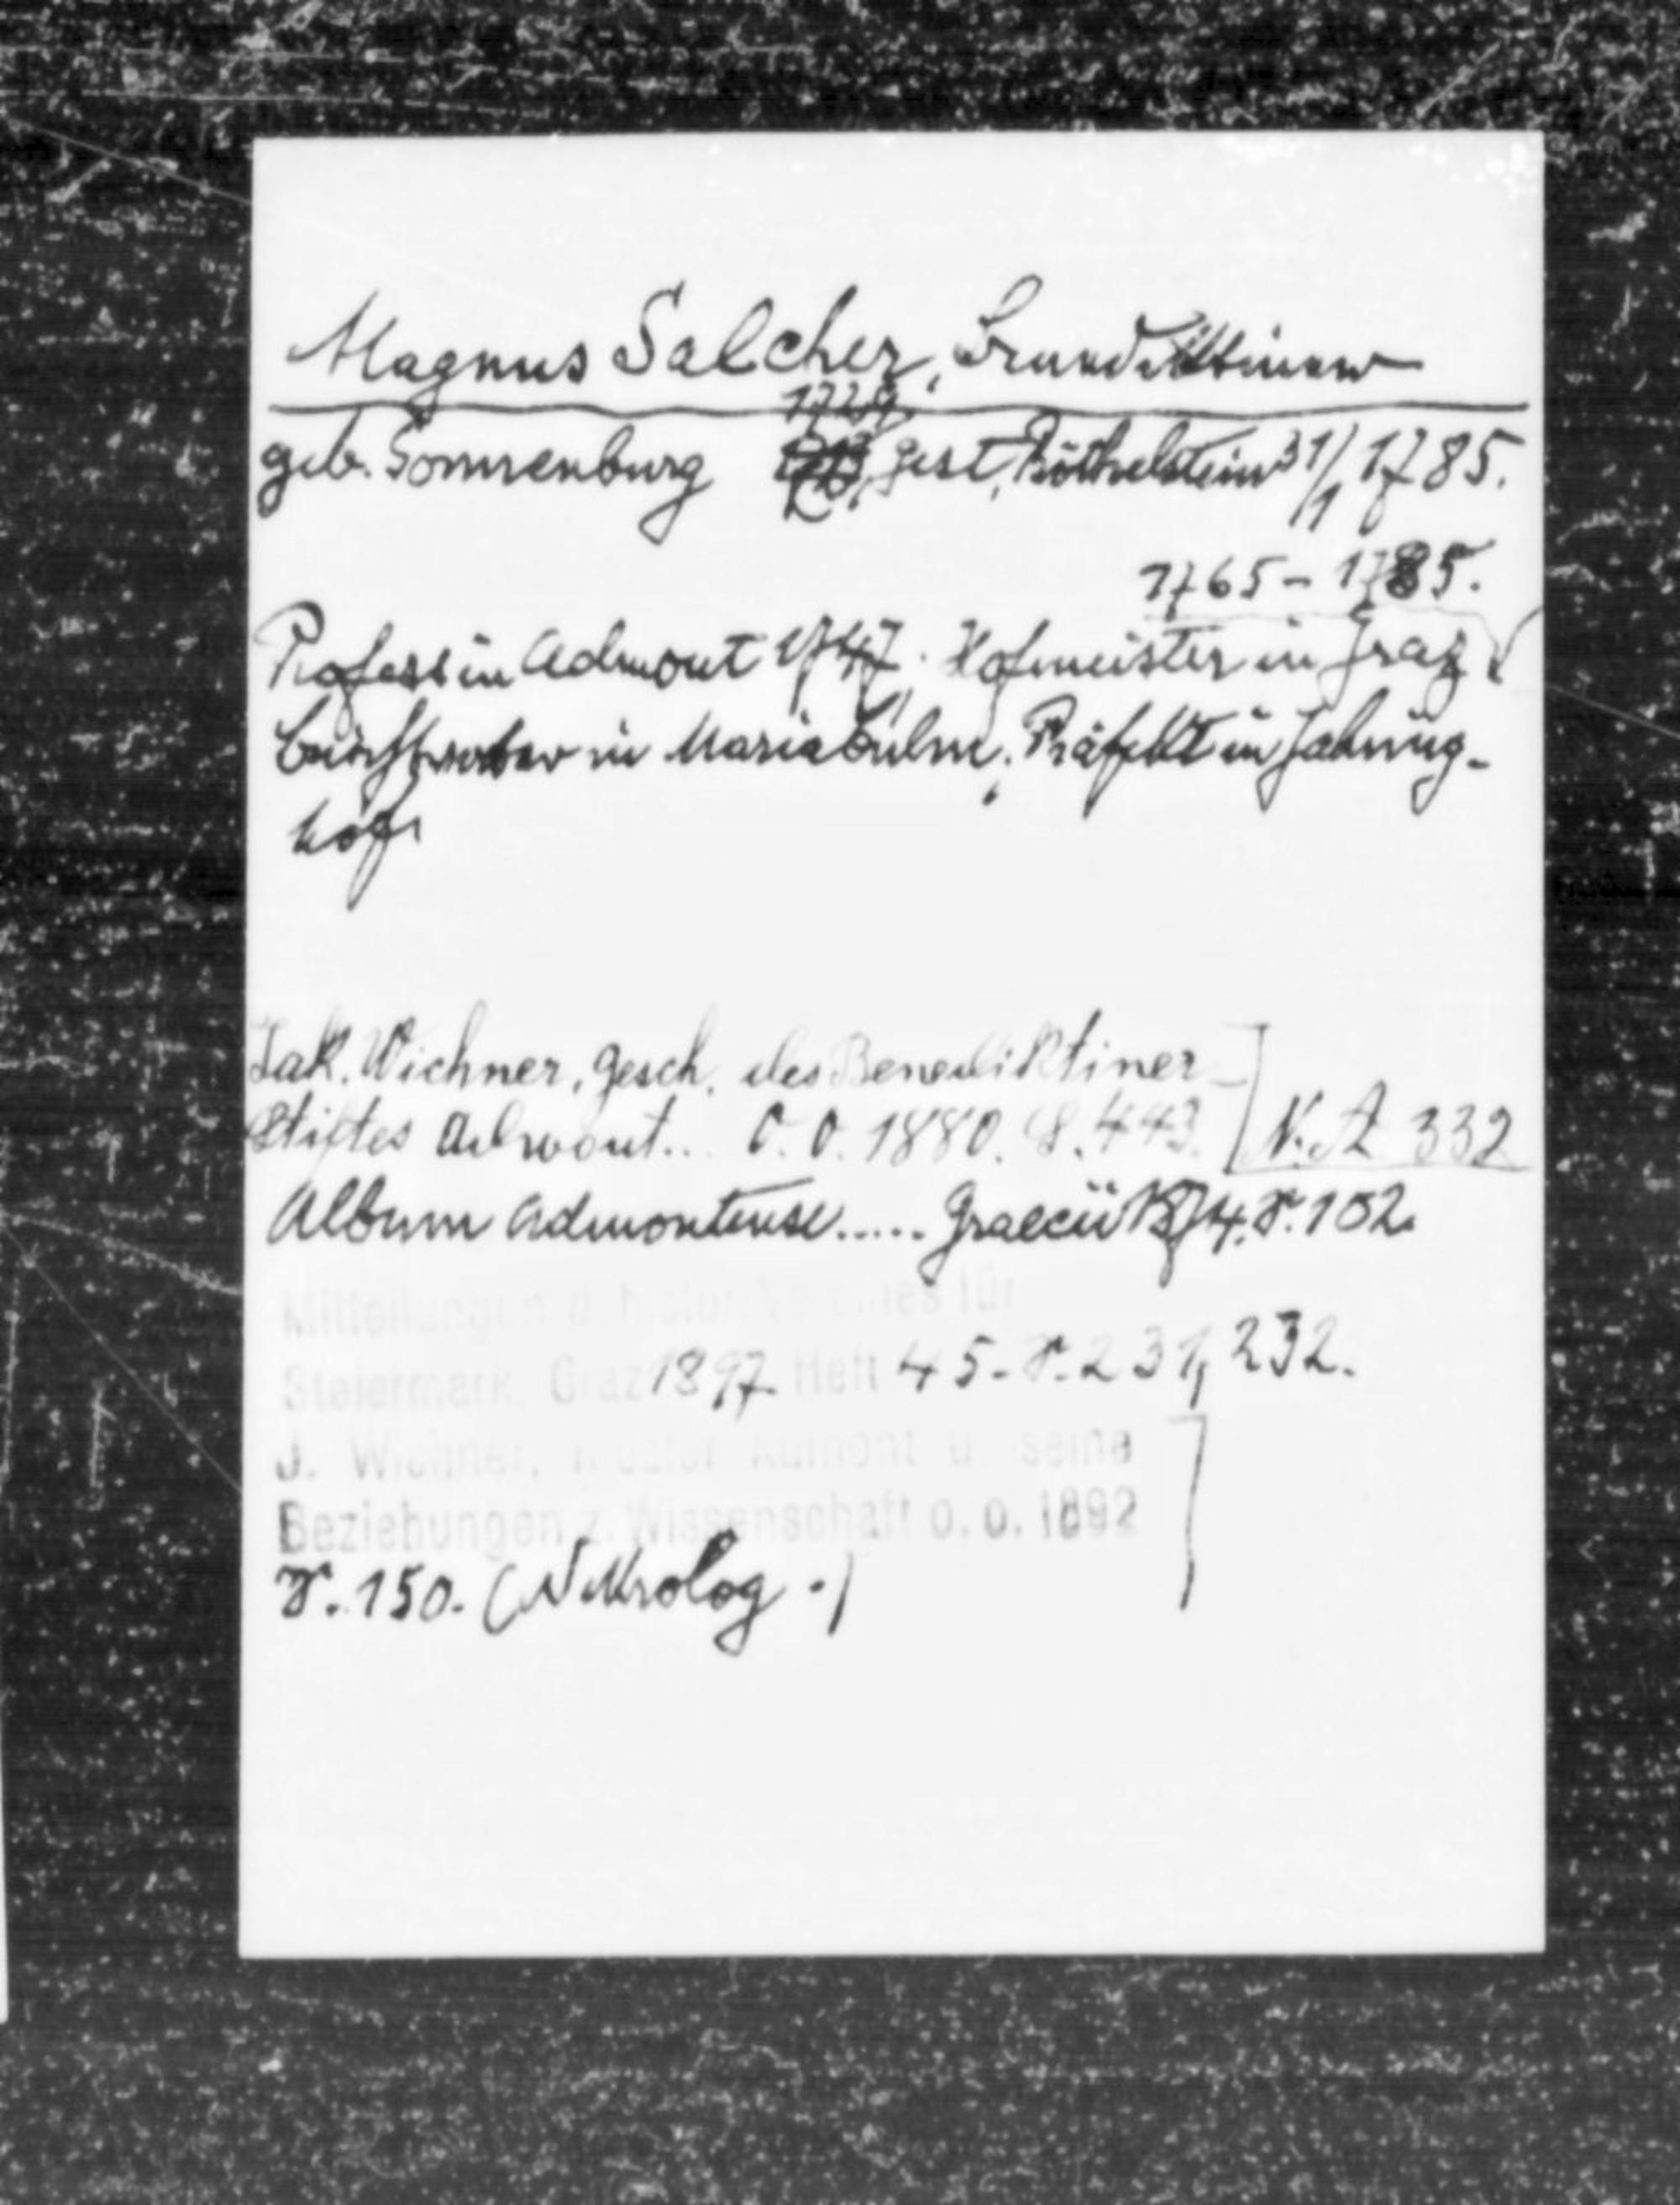 Magnus Salcher, Benediktiner
1729
geb. Sonnenburg gest. Röthelstein 31/1 1785.
1765-1785.
Profess in Admont 1747. Hofmeister in Graz
Beichtvater in Mariakulm. Präfekt in Jahring-
hof
Jak. Wichner, Gesch. des Benediktiner
Stiftes Admont... O.O. 1880. S. 443. N. A 332
Album Admontense..... Graecii 1874. S. 102.
Mitteilungen d. histor. Vereines für
Steiermark. Graz 1897. Heft 45. S. 231, 232.
J. Wichner, Kloster Admont u. seine
Beziehungen z. Wissenschaft o. O. 1892
S. 150. (Nekrolog.)